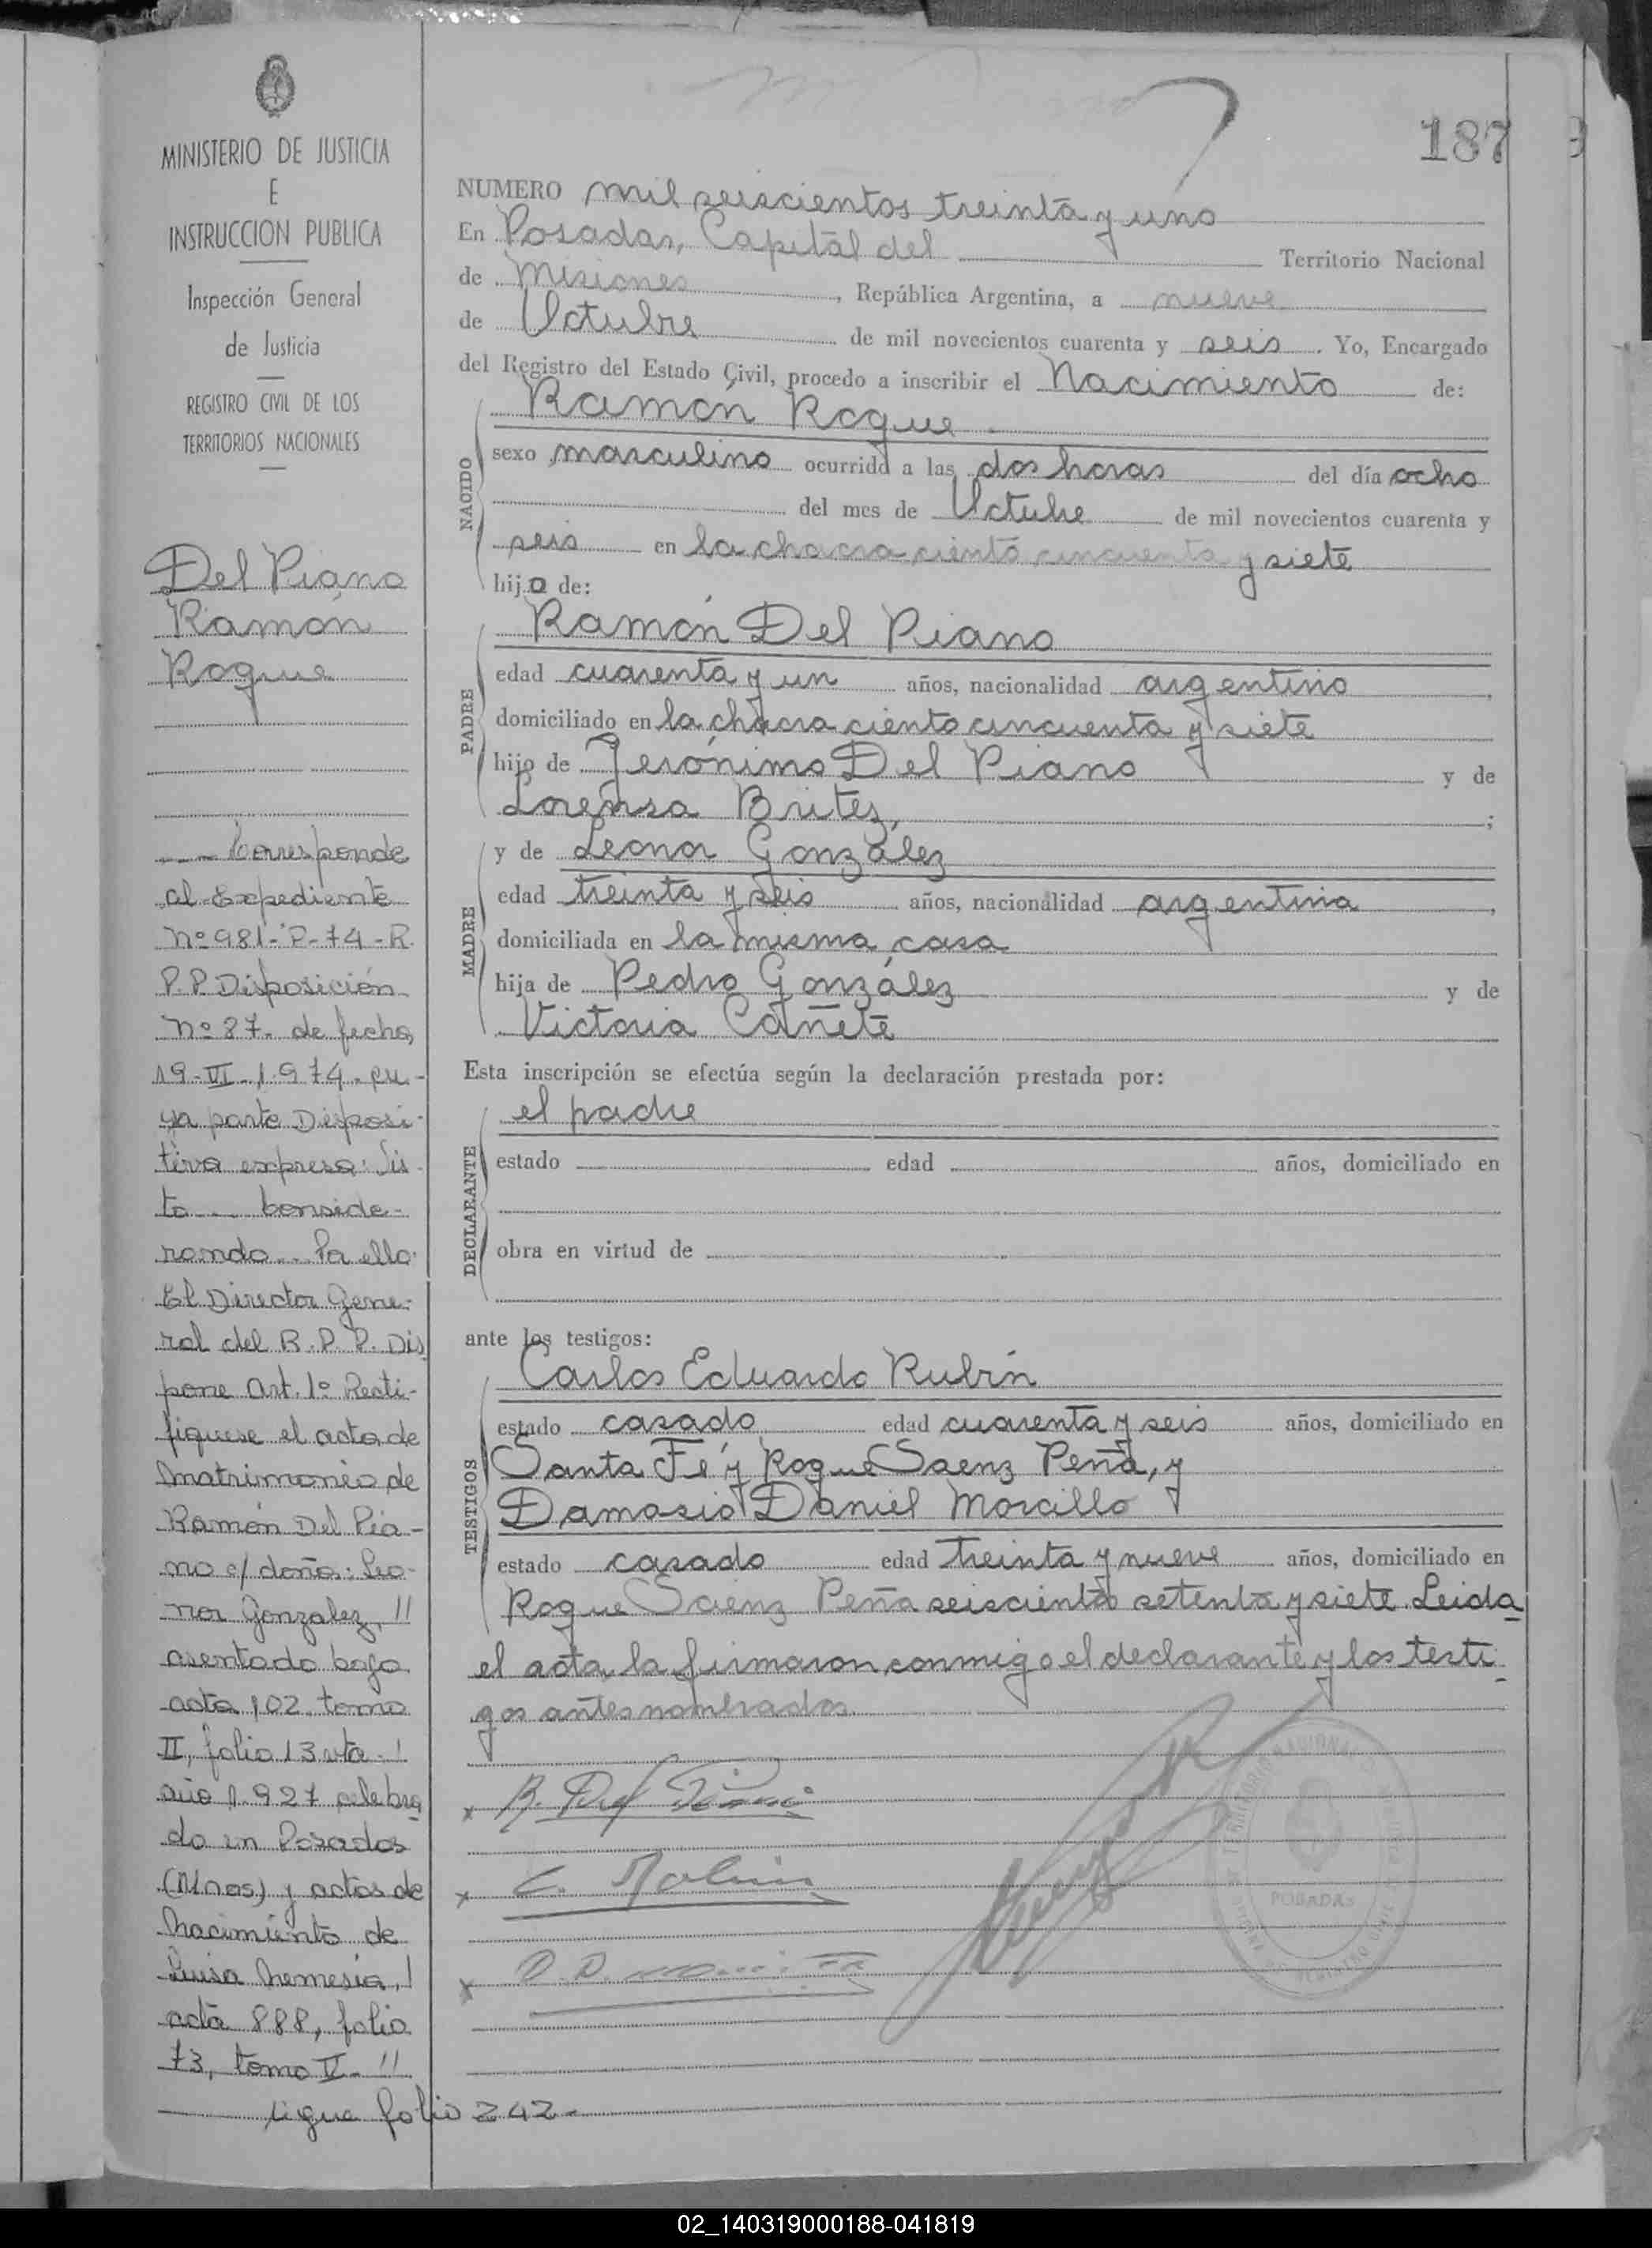 187
MINISTERIO DE JUSTICIA
E
INSTRUCCION PUBLICA
Inspección General
de Justicia
REGISTRO CIVIL DE LOS
TERRITORIOS NACIONALES
Del Piano
Ramón
Roque
--- Corresponde
al Expediente
Nº 981-P-74-R.
P.P. Disposición
Nº 87. de fecha
19-VI-1974. cu-
ya parte Disposi-
tiva expresa: Vis-
to... Conside-
rando... Por ello:
El Director Gene-
ral del R.P.P. Dis
pone Art. 1º Recti-
fiquese el acta de
Matrimonio de
Ramón Del Pia-
no c/ doña: Leo-
nor Gonzalez, !!
asentado bajo
acta 102 tomo
II, folio 13 vta. !
año 1.927 celebra
do en Posadas
(Mnes) y actas de
Nacimiento de
Luisa Nemesia, !
acta 888, folio
73, tomo V- !!
sigue folio 242-
NUMERO mil seiscientos treinta y uno
En Posadas, Capital del Territorio Nacional
de Misiones, República Argentina, a nueve
de Octubre de mil novecientos cuarenta y seis. Yo, Encargado
del Registro del Estado Civil, procedo a inscribir el Nacimiento de:
NACIDO
Ramón Roque
sexo masculino ocurrido a las dos horas del día ocho
del mes de Octubre de mil novecientos cuarenta y
seis en la chacra ciento cincuenta y siete
hijo de:
PADRE
Ramón Del Piano
edad cuarenta y un años, nacionalidad argentino,
domiciliado en la chacra ciento cincuenta y siete
hijo de Jerónimo Del Piano y de
Lorensa Britez, ;
MADRE
y de Leonor González
edad treinta y seis años, nacionalidad argentina,
domiciliada en la misma casa
hija de Pedro González y de
Victoria Cañete
Esta inscripción se efectúa según la declaración prestada por:
DECLARANTE
el padre
estado edad años, domiciliado en
obra en virtud de
ante los testigos:
TESTIGOS
Carlos Eduardo Rubín
estado casado edad cuarenta y seis años, domiciliado en
Santa Fé y Roque Saenz Peña, y
Damasio Daniel Morcillo
estado casado edad treinta y nueve años, domiciliado en
Roque Saenz Peña seiscientos setenta y siete. Leida
el acta la firmaron conmigo el declarante y los testi-
gos antes nombrados.
x R. Del Piano
x C.
x D. D.
POSADAS
02_140319000188-041819